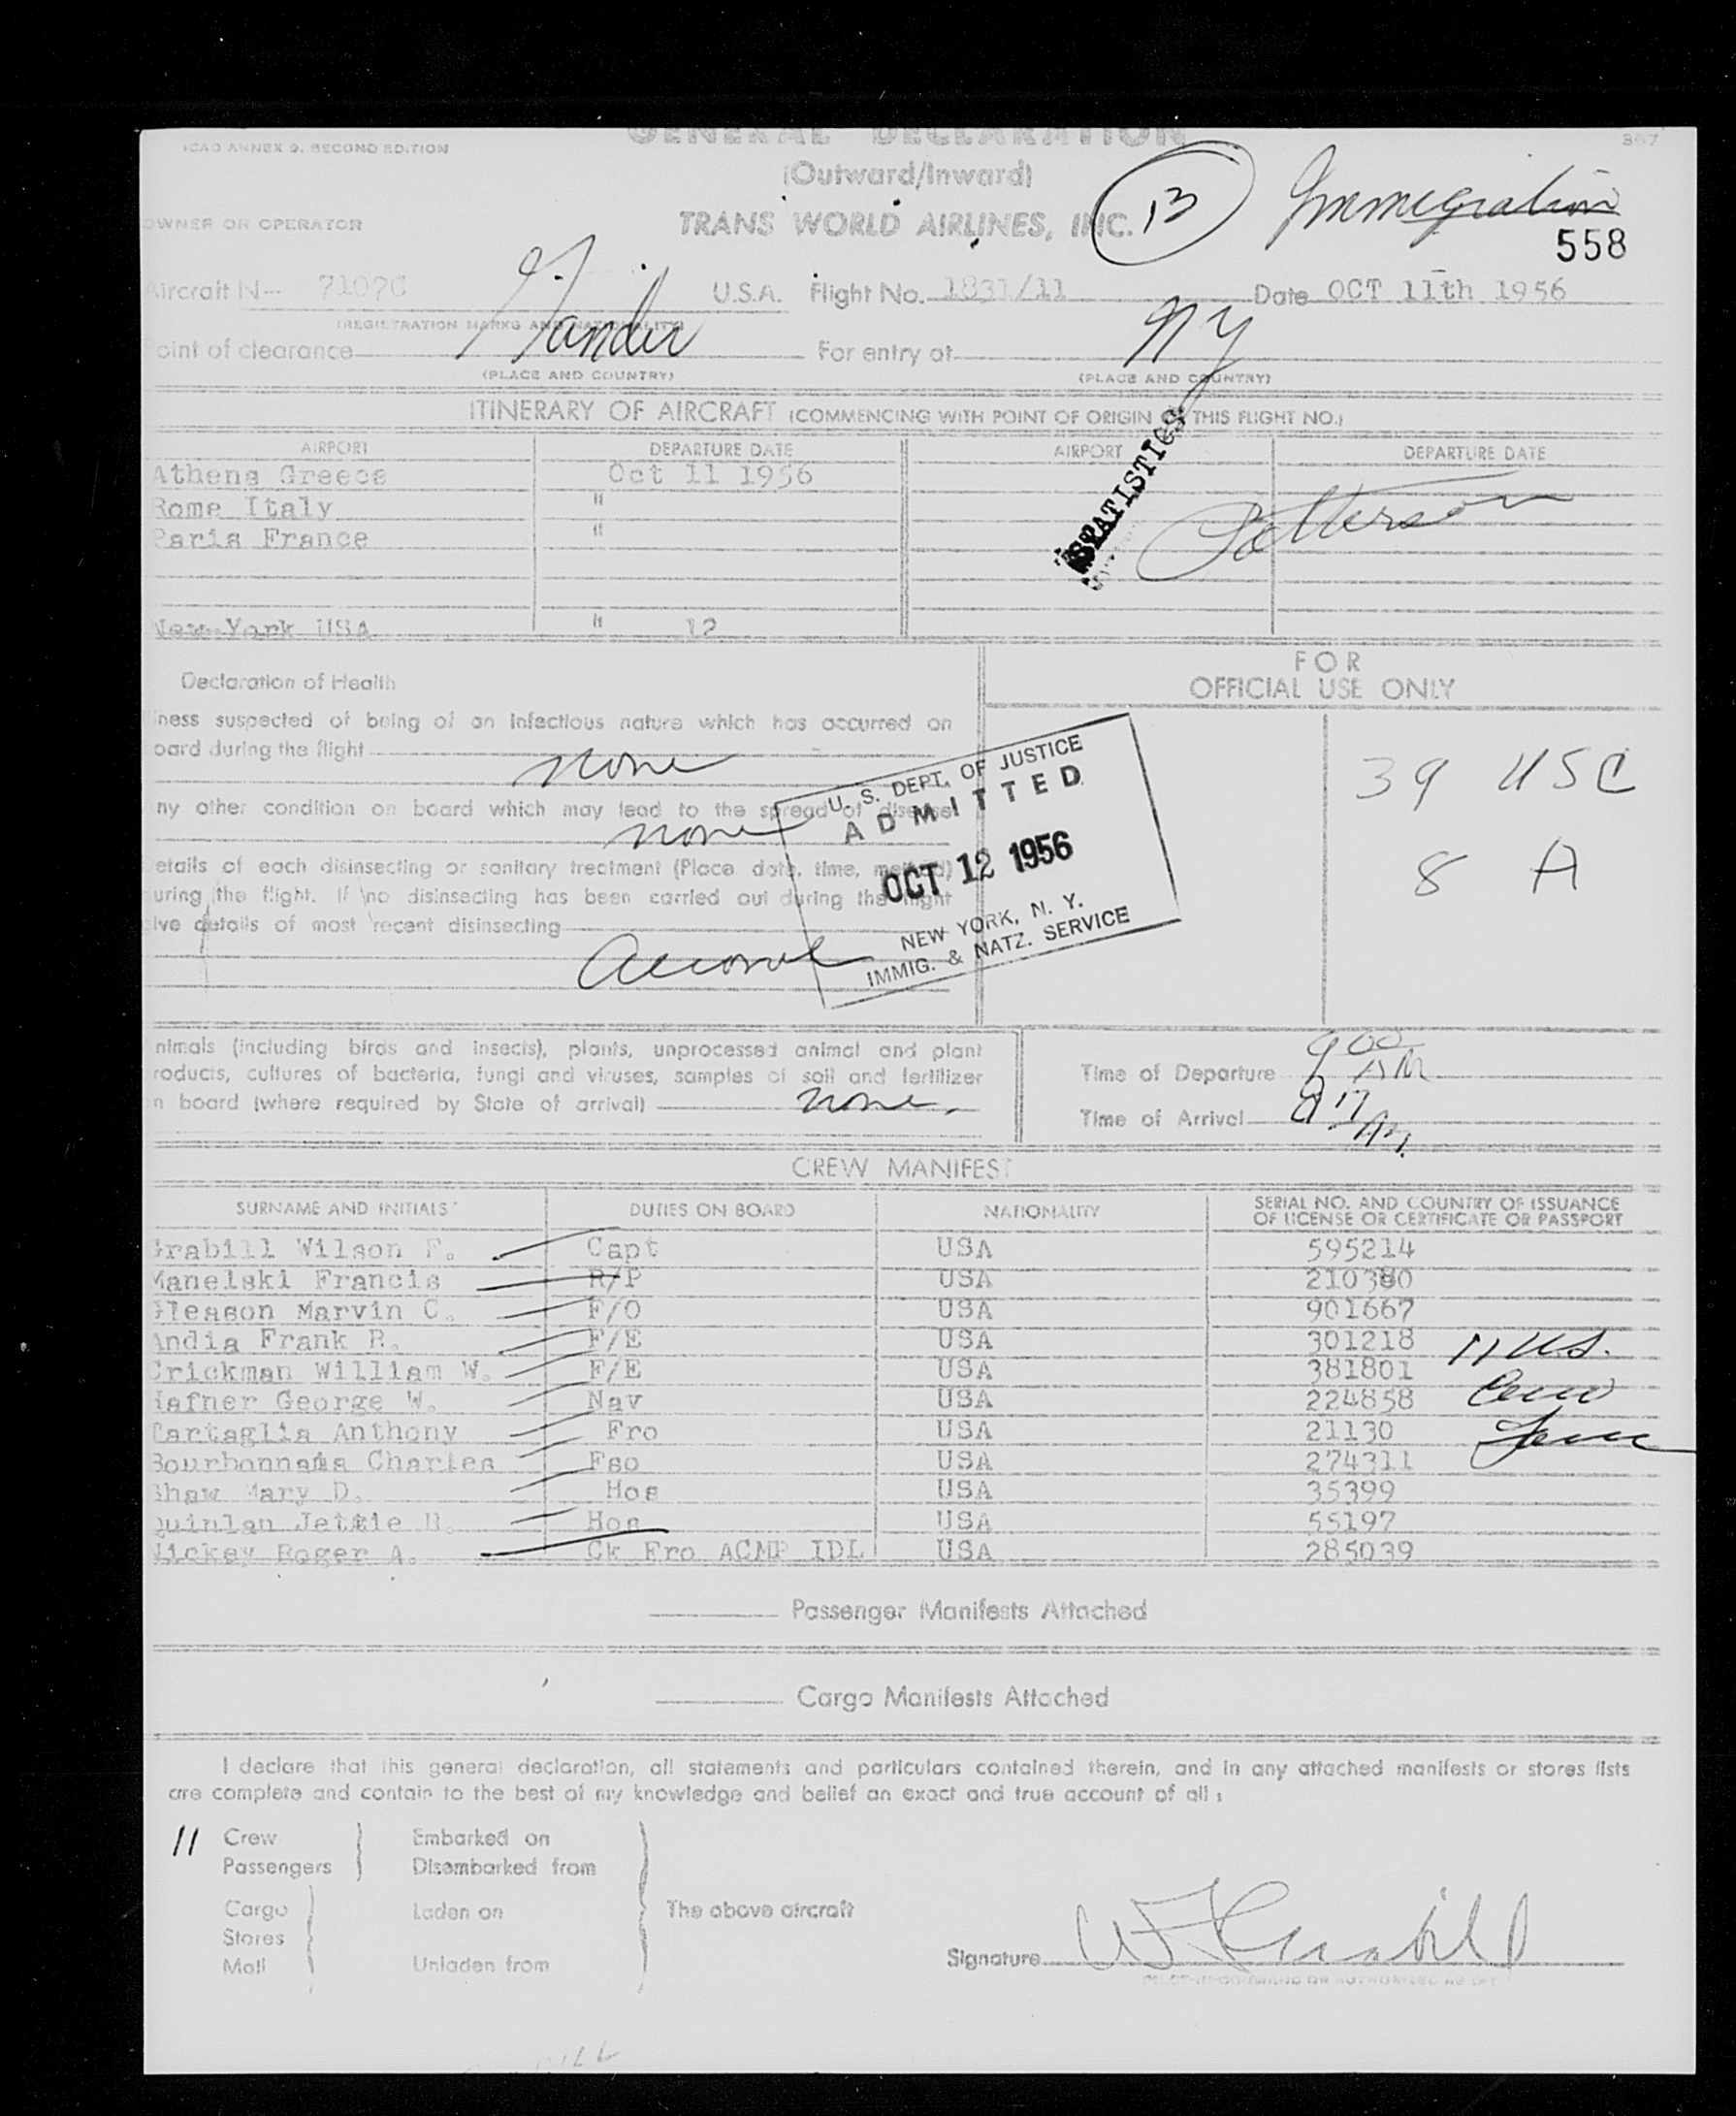 GENERAL DECLARATION
ICAO ANNEX 9. SECOND EDITION
(Outward/Inward)
OWNER OR OPERATOR TRANS WORLD AIRLINES, INC. 13 Immegration
558
Aircraft N-- 7107C U.S.A. Flight No. 1831/11 Date OCT 11th 1956
(REGISTRATION MARKS AND NATIONALITY)
oint of clearance Gander For entry at NY
(PLACE AND COUNTRY) (PLACE AND COUNTRY)
ITINERARY OF AIRCRAFT (COMMENCING WITH POINT OF ORIGIN OF THIS FLIGHT NO.)
AIRPORT DEPARTURE DATE AIRPORT DEPARTURE DATE
Athens Greece Oct 11 1956
Rome Italy "
Paris France "
STATISTICS
Patterson
New York USA " 12
FOR
OFFICIAL USE ONLY
Declaration of Health
lness suspected of being of an infectious nature which has occurred on
oard during the flight none
ny other condition on board which may lead to the spread of disease
none
etails of each disinsecting or sanitary treatment (Place date, time, method)
uring the flight. If no disinsecting has been carried out during the flight
ive details of most recent disinsecting
U. S. DEPT. OF JUSTICE
ADMITTED
OCT 12 1956
NEW YORK, N. Y.
IMMIG. & NATZ. SERVICE
39 USC
8 A
nimals (including birds and insects), plants, unprocessed animal and plant
roducts, cultures of bacteria, fungi and viruses, samples of soil and fertilizer
n board (where required by State of arrival) none.
Time of Departure 900 AM
Time of Arrival
CREW MANIFEST
SURNAME AND INITIALS DUTIES ON BOARD NATIONALITY SERIAL NO. AND COUNTRY OF ISSUANCE
OF LICENSE OR CERTIFICATE OR PASSPORT
Grabill Wilson F. Capt USA 595214
Manelski Francis R/P USA 210380
Gleason Marvin C. F/O USA 901667
Andia Frank R. F/E USA 301218 11 U.S.
Crickman William W. F/E USA 381801
Hafner George W. Nav USA 224858 Crew
Tartaglia Anthony Fro USA 21130
Bourbonnais Charles Fso USA 274311
Shaw Mary D. Hos USA 35399
Quinlan Jettie B. Hos USA 55197
Hickey Roger A. Ck Fro ACMP IDL USA 285039
Passenger Manifests Attached
Cargo Manifests Attached
I declare that this general declaration, all statements and particulars contained therein, and in any attached manifests or stores lists
are complete and contain to the best of my knowledge and belief an exact and true account of all :
11 Crew Embarked on
Passengers Disembarked from
Cargo Laden on The above aircraft
Stores
Mail Unladen from
Signature WF Grabill